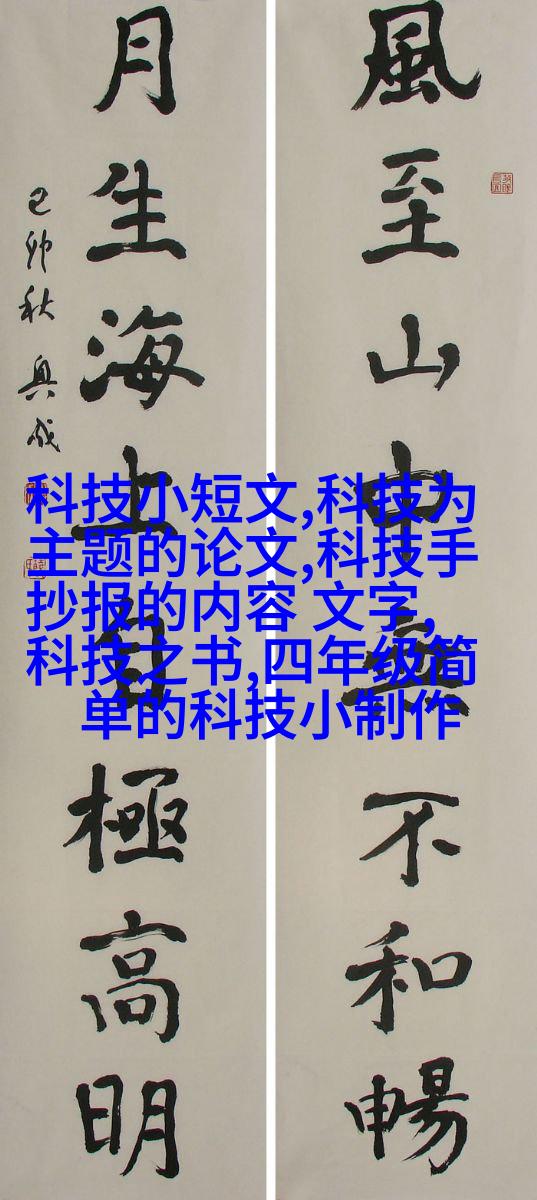 風至山中無不和暢
月生海上自極高明
己卯秋
科技小短文,科技为
主题的论文,科技手
抄报的内容 文字,
科技之书,四年级简
单的科技小制作